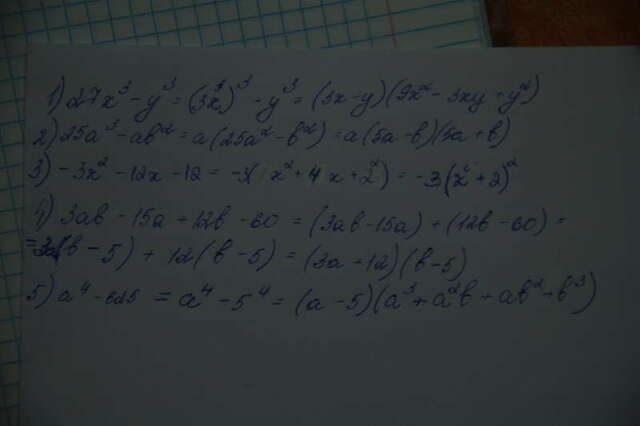 1) 27x³ - y³ = (3x)³ - y³ = (3x-y)(9x² - 3xy + y²)
2) 25a³ - ab² = a(25a² - b²) = a(5a-b)(5a+b)
3) -3x² - 12x - 12 = -3(x² + 4x + 2²) = -3(x² + 2)²
4) 3ab - 15a + 12b - 60 = (3ab - 15a) + (12b - 60) =
= 3a(b - 5) + 12(b - 5) = (3a + 12)(b - 5)
5) a⁴ - 625 = a⁴ - 5⁴ = (a - 5)(a³ + a²b + ab² + b³)